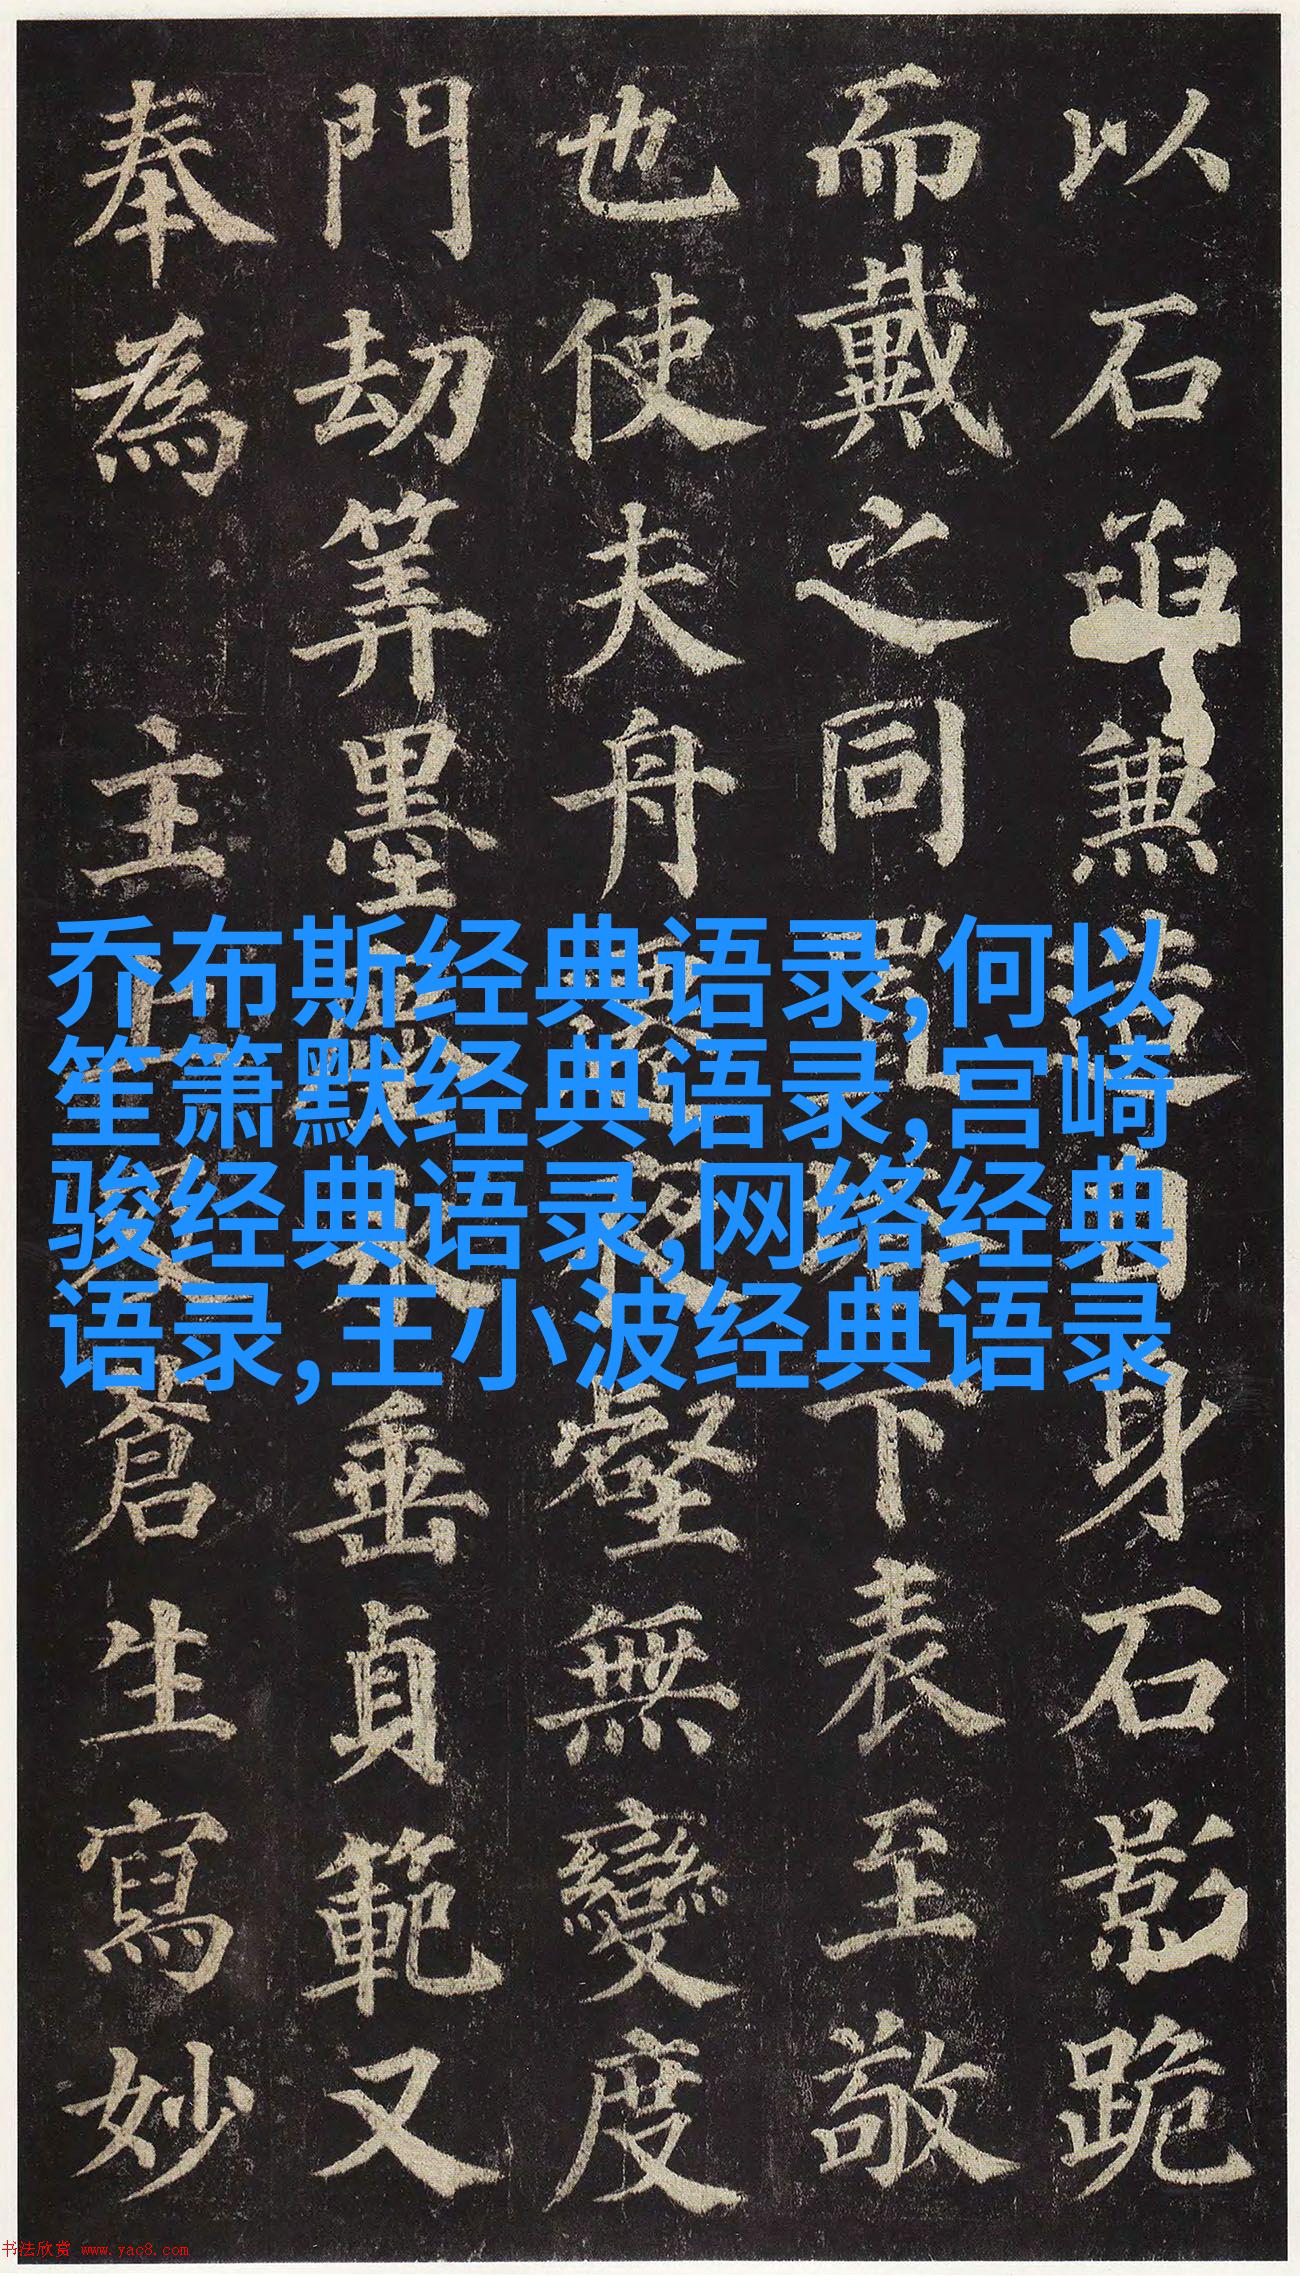 以石函兼造自身石影跪
而戴之同置塔下表至敬
也使夫舟遷夜壑無變度
門劫筭墨塵永垂貞範又
奉為 主上及蒼生寫妙
乔布斯经典语录,何以
笙箫默经典语录,宫崎
骏经典语录,网络经典
语录,王小波经典语录
书法欣赏 www.yac8.com